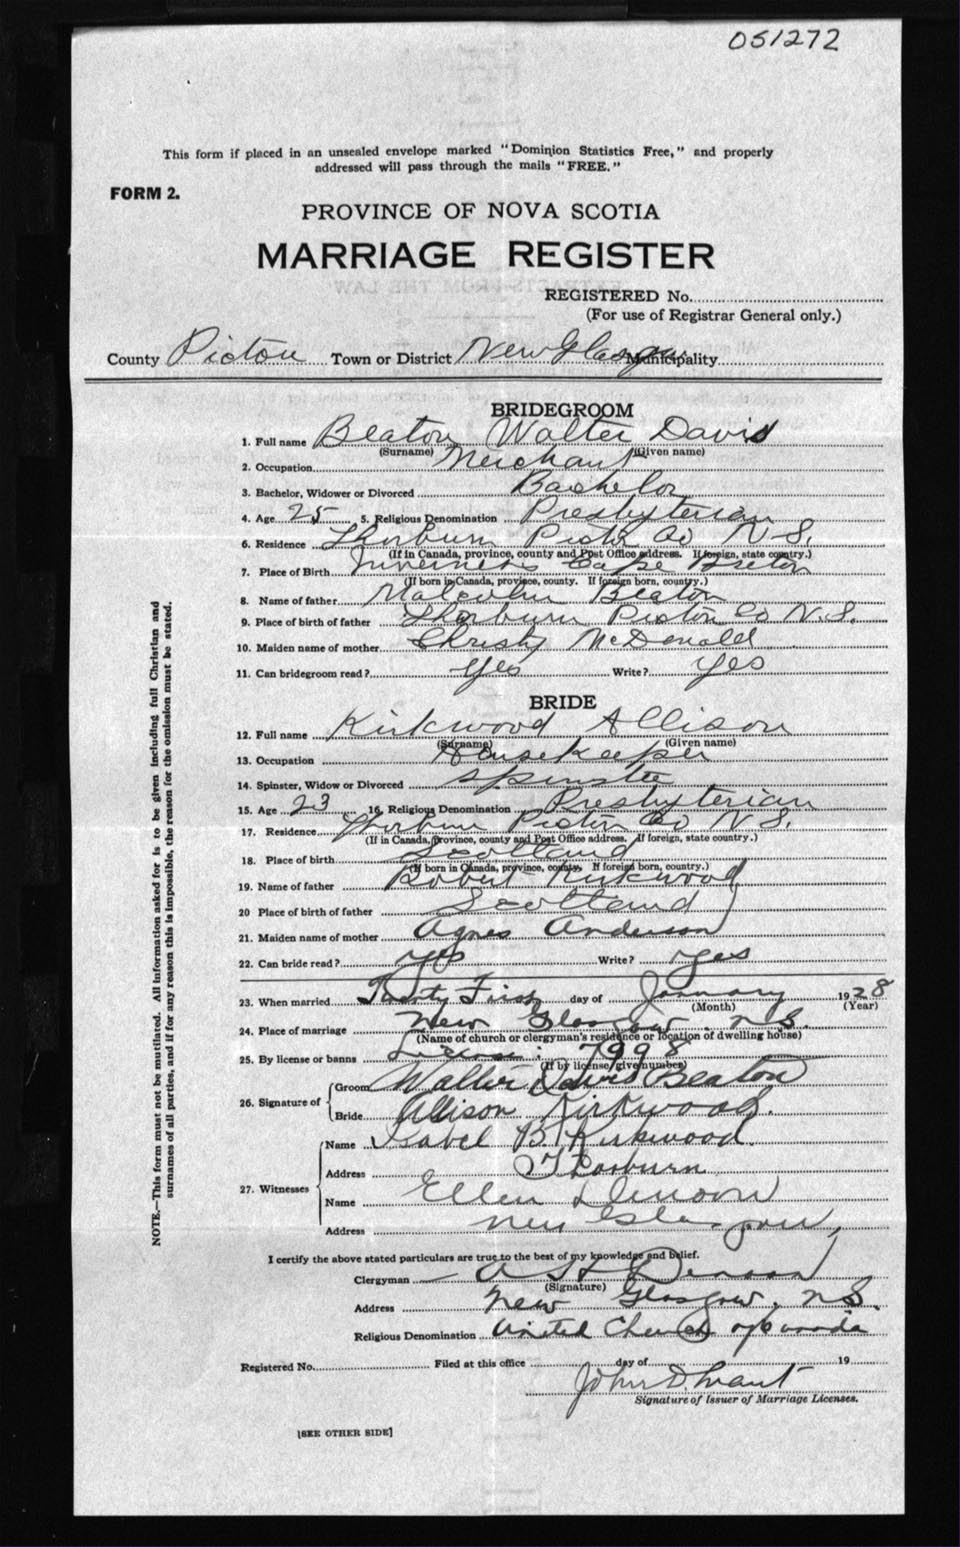 051272
This form if placed in an unsealed envelope marked "Dominion Statistics Free," and properly
addressed will pass through the mails "FREE."
FORM 2.
PROVINCE OF NOVA SCOTIA
MARRIAGE REGISTER
REGISTERED No.
(For use of Registrar General only.)
County Pictou Town or District New Glasgow Municipality
BRIDEGROOM
1. Full name Beaton Walter Davis
(Surname) (Given name)
2. Occupation Merchant
3. Bachelor, Widower or Divorced Bachelor
4. Age 25 5. Religious Denomination Presbyterian
6. Residence Thorburn Pictou Co N.S.
(If in Canada, province, county and Post Office address. If foreign, state country.)
7. Place of Birth Inverness Cape Breton
(If born in Canada, province, county. If foreign born, country.)
8. Name of father Malcolm Beaton
9. Place of birth of father Thorburn Pictou Co N.S.
10. Maiden name of mother Christy McDonald
11. Can bridegroom read? Yes Write? Yes
BRIDE
12. Full name Kirkwood Allison
(Surname) (Given name)
13. Occupation Housekeeper
14. Spinster, Widow or Divorced Spinster
15. Age 23 16. Religious Denomination Presbyterian
17. Residence Thorburn Pictou Co N.S.
(If in Canada, province, county and Post Office address. If foreign, state country.)
18. Place of birth Scotland
(If born in Canada, province, county. If foreign born, country.)
19. Name of father Robert Kirkwood
20 Place of birth of father Scotland
21. Maiden name of mother Agnes Anderson
22. Can bride read? Yes Write? Yes
23. When married Twenty First day of January 1928
(Month) (Year)
24. Place of marriage New Glasgow N.S.
(Name of church or clergyman's residence or location of dwelling house)
25. By license or banns License: 7998
(If by license, give number)
26. Signature of Groom Walter Davis Beaton
Bride Allison Kirkwood.
27. Witnesses Name Isabel B. Kirkwood.
Address Thorburn
Name Ellen
Address New Glasgow,
I certify the above stated particulars are true to the best of my knowledge and belief.
Clergyman
(Signature)
Address New Glasgow, N.S.
Religious Denomination United Church of Canada
Registered No. Filed at this office day of 19
John D. Grant
Signature of Issuer of Marriage Licenses.
[SEE OTHER SIDE]
NOTE.—This form must not be mutilated. All information asked for is to be given including full Christian and
surnames of all parties, and if for any reason this is impossible, the reason for the omission must be stated.